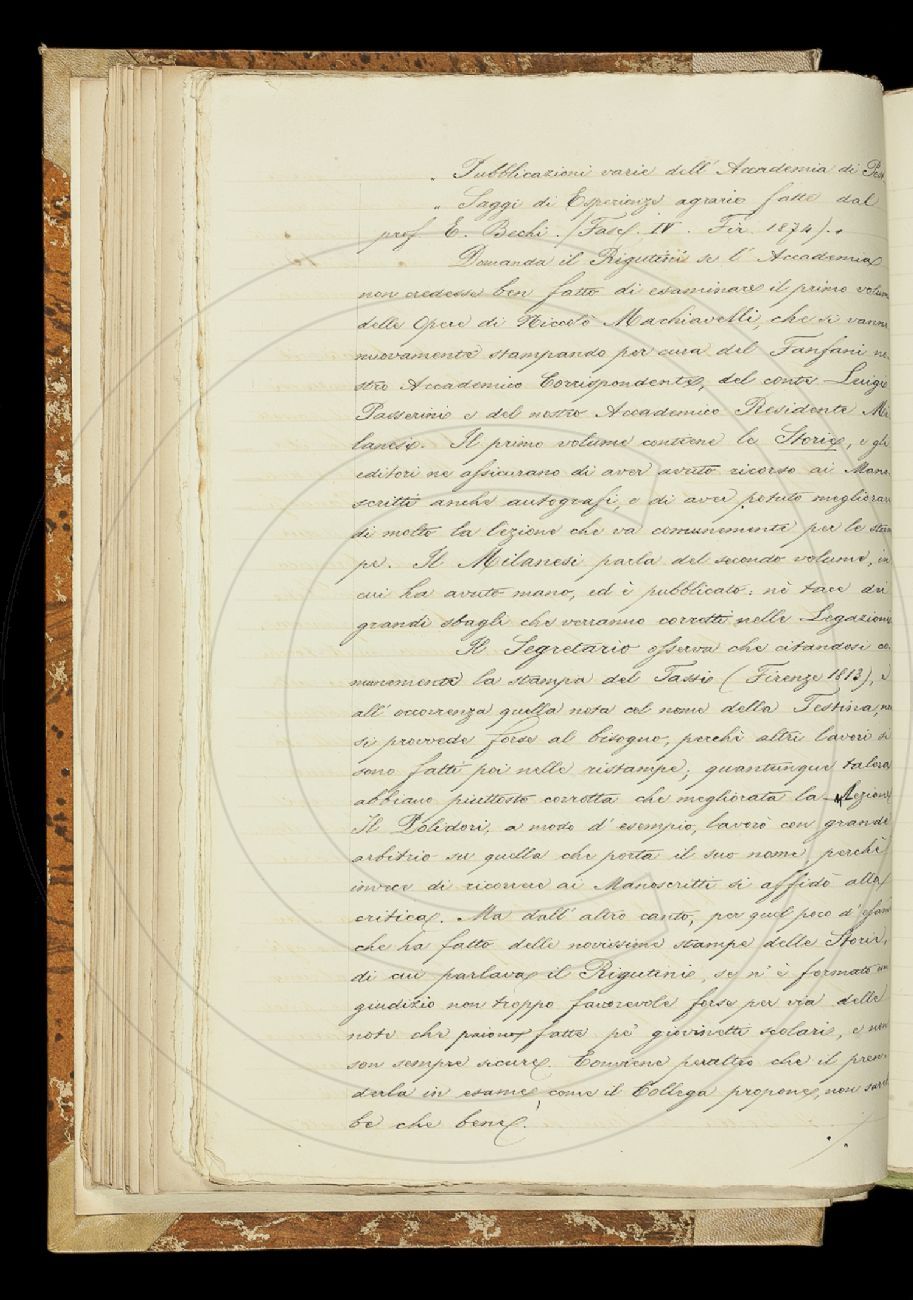 „ Pubblicazioni varie dell' Accademia di
„ Saggi di Esperienze agrarie fatte dal
prof E. Bechi. (Fasc. IV. Fir. 1874).„
Domanda il Rigutini se l' Accademia
non credesse ben fatto di esaminare il primo volume
delle Opere di Niccolò Machiavelli, che si vanno
nuovamente stampando per cura del Fanfani no
stro Accademico Corrispondente, del conte Luigi
Passerini e del nostro Accademico Residente Mi
lanesi. Il primo volume contiene le Storie, e gli
editori ne assicurano di aver avuto ricorso ai Mano
scritti anche autografi, e di aver potuto migliorar
di molto la lezione che va comunemente per le stam
pe. Il Milanesi parla del secondo volume, in
cui ha avuto mano, ed è pubblicato: nè tace dei
grandi sbagli che verranno corretti nelle Legazioni
Il Segretario osserva che citandosi co
munemente la stampa del Tassi (Firenze 1813), e
all' occorrenza quella nota col nome della Testina, non
si provvede forse al bisogno, perchè altri lavori si
sono fatti poi nelle ristampe; quantunque talora
abbiano piuttosto corrotta che megliorata la lezione
Il Polidori, a modo d' esempio, lavorò con grande
arbitrio su quella che porta il suo nome, perchè
invece di ricorrere ai Manoscritti si affidò alla
critica. Ma dall' altro canto, per quel poco d' esame
che ha fatto delle novissime stampe delle Storie,
di cui parlava il Rigutini, se n' è formato un
giudizio non troppo favorevole forse per via delle
note che paiono fatte pe' giovinetti scolari, e non
son sempre sicure. Conviene peraltro che il pren-
derla in esame come il Collega propone, non sareb
be che bene.